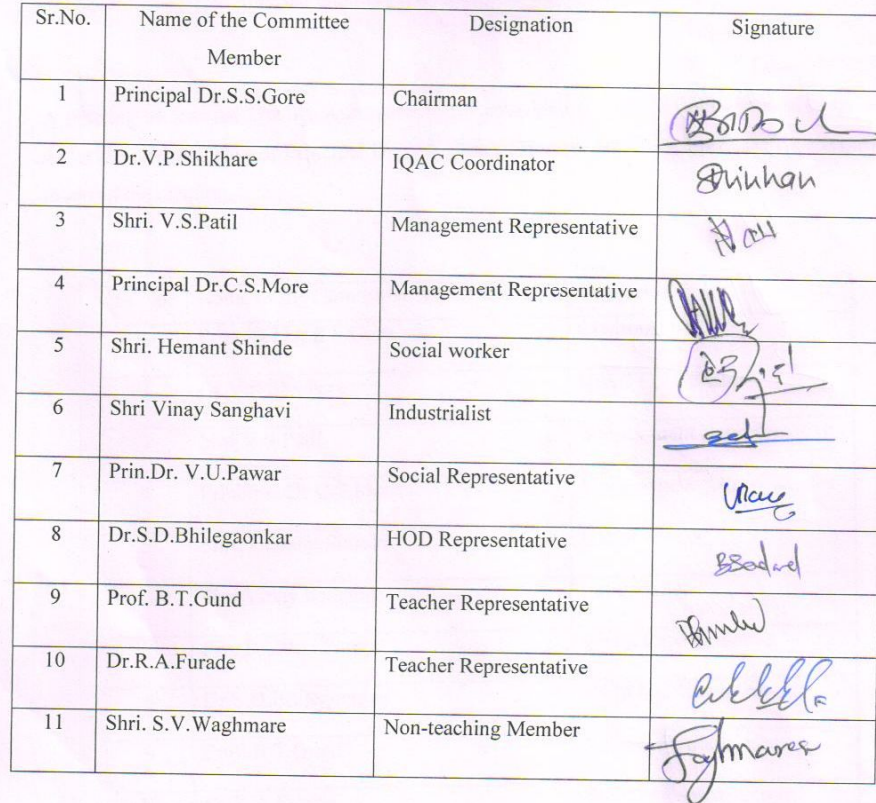 Sr.No. Name of the Committee Member Designation Signature
1 Principal Dr.S.S.Gore Chairman
2 Dr.V.P.Shikhare IQAC Coordinator
3 Shri. V.S.Patil Management Representative
4 Principal Dr.C.S.More Management Representative
5 Shri. Hemant Shinde Social worker
6 Shri Vinay Sanghavi Industrialist
7 Prin.Dr. V.U.Pawar Social Representative
8 Dr.S.D.Bhilegaonkar HOD Representative
9 Prof. B.T.Gund Teacher Representative
10 Dr.R.A.Furade Teacher Representative
11 Shri. S.V.Waghmare Non-teaching Member